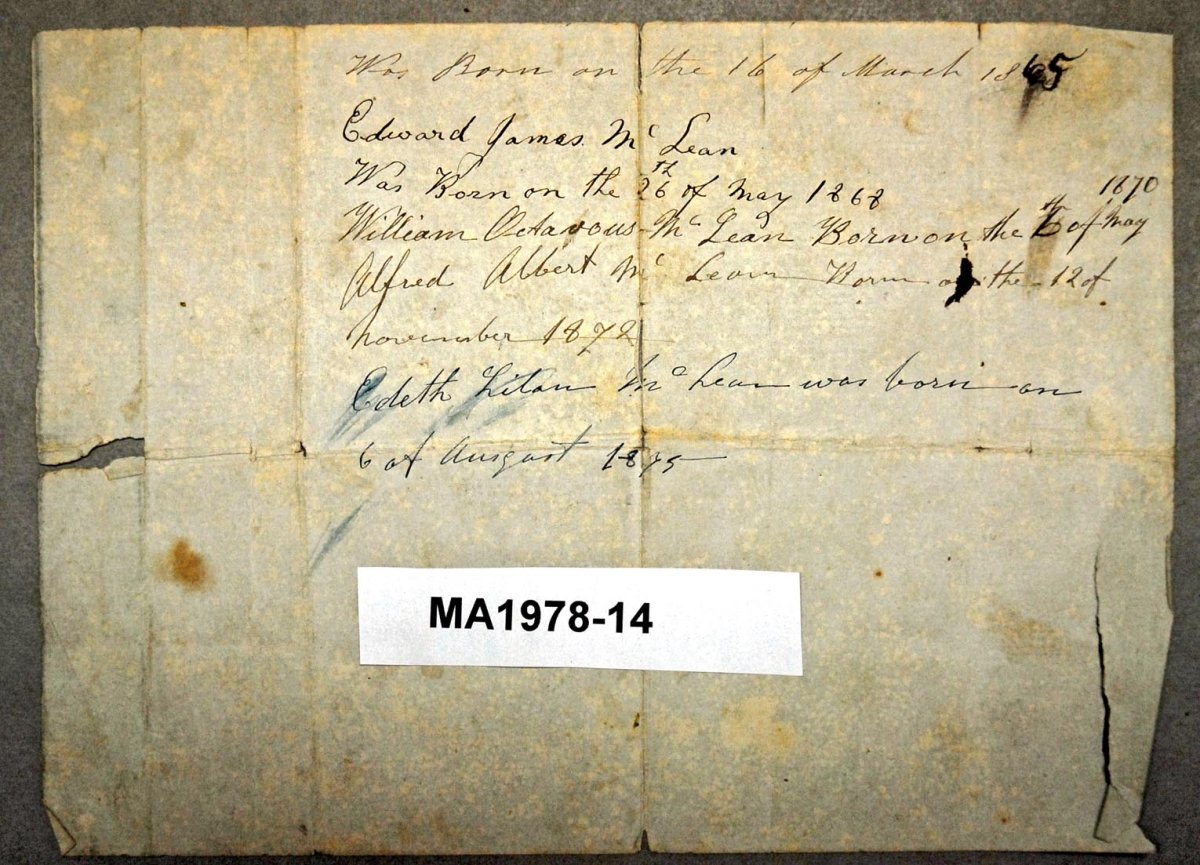 Was Born on the 16 of March 1865
Edward James Mc Lean
Was Born on the 26th of May 1868
1870
William Octavous Mc Lean Born on the th of May
Alfred Albert Mc Lean Born on the 12 of
november 1872
Edeth Lilan Mc Lean was born on
6 of Ausgast 1875
MA1978-14